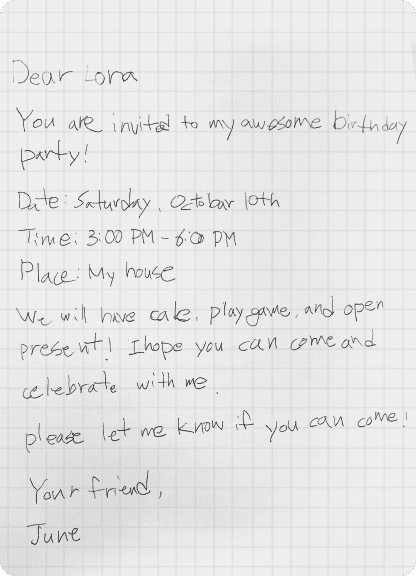 Dear Lora
You are invited to my awesome birthday
party!
Date: Saturday, Octobar 10th
Time: 3:00 PM - 6:0 PM
Place: My house
We will have cake, play game, and open
present! I hope you can come and
celebrate with me.
please let me know if you can come!
Your friend,
June